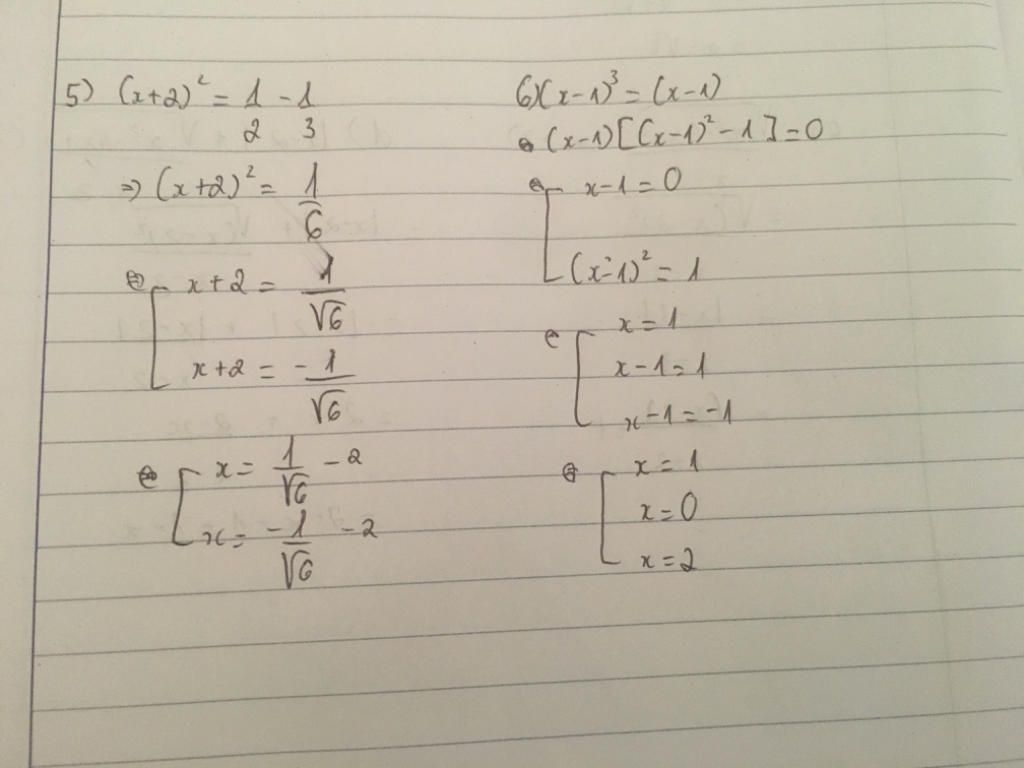 5) (x+2)² = 1/2 - 1/3
⇒ (x+2)² = 1/6
⇔ [ x+2 = 1/√6
x+2 = -1/√6
⇔ [ x = 1/√6 - 2
x = -1/√6 - 2
6) (x-1)³ = (x-1)
⇔ (x-1)[(x-1)² - 1] = 0
⇔ [ x-1 = 0
(x-1)² = 1
⇔ [ x = 1
x-1 = 1
x-1 = -1
⇔ [ x = 1
x = 0
x = 2